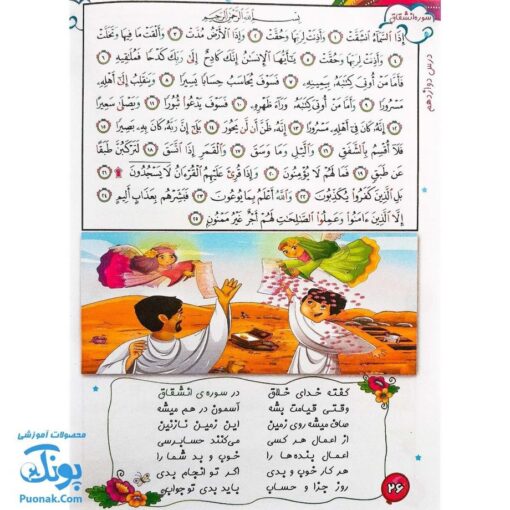 سوره انشقاق
بِسْمِ اللَّهِ الرَّحْمَٰنِ الرَّحِيمِ
درس دوازدهم
إِذَا السَّمَاءُ انشَقَّتْ ۱ وَأَذِنَتْ لِرَبِّهَا وَحُقَّتْ ۲ وَإِذَا الْأَرْضُ مُدَّتْ ۳ وَأَلْقَتْ مَا فِيهَا وَتَخَلَّتْ
۴ وَأَذِنَتْ لِرَبِّهَا وَحُقَّتْ ۵ يَٰأَيُّهَا الْإِنسَٰنُ إِنَّكَ كَادِحٌ إِلَىٰ رَبِّكَ كَدْحًا فَمُلَٰقِيهِ ۶
فَأَمَّا مَنْ أُوتِيَ كِتَٰبَهُ بِيَمِينِهِ ۷ فَسَوْفَ يُحَاسَبُ حِسَابًا يَسِيرًا ۸ وَيَنقَلِبُ إِلَىٰ أَهْلِهِ
مَسْرُورًا ۹ وَأَمَّا مَنْ أُوتِيَ كِتَٰبَهُ وَرَاءَ ظَهْرِهِ ۱۰ فَسَوْفَ يَدْعُوا ثُبُورًا ۱۱ وَيَصْلَىٰ سَعِيرًا
۱۲ إِنَّهُ كَانَ فِي أَهْلِهِ مَسْرُورًا ۱۳ إِنَّهُ ظَنَّ أَن لَّن يَحُورَ ۱۴ بَلَىٰ إِنَّ رَبَّهُ كَانَ بِهِ بَصِيرًا ۱۵
فَلَا أُقْسِمُ بِالشَّفَقِ ۱۶ وَاللَّيْلِ وَمَا وَسَقَ ۱۷ وَالْقَمَرِ إِذَا اتَّسَقَ ۱۸ لَتَرْكَبُنَّ طَبَقًا
عَن طَبَقٍ ۱۹ فَمَا لَهُمْ لَا يُؤْمِنُونَ ۲۰ وَإِذَا قُرِئَ عَلَيْهِمُ الْقُرْءَانُ لَا يَسْجُدُونَ ۩ ۲۱
بَلِ الَّذِينَ كَفَرُوا يُكَذِّبُونَ ۲۲ وَاللَّهُ أَعْلَمُ بِمَا يُوعُونَ ۲۳ فَبَشِّرْهُم بِعَذَابٍ أَلِيمٍ ۲۴
إِلَّا الَّذِينَ ءَامَنُوا وَعَمِلُوا الصَّٰلِحَٰتِ لَهُمْ أَجْرٌ غَيْرُ مَمْنُونٍ ۲۵
گفته خدای خلاق در سوره‌ی انشقاق
وقتی قیامت بشه آسمون در هم میشه
صاف میشه روی زمین این زمین نازنین
از اعمال هر کسی می‌کنند حسابرسی
اعمال بنده‌ها را خوب و بد شما را
هر کار خوب و بدی اگر تو انجام بدی
روز جزا و حساب باید بدی تو جواب
۲۶
محصولات آموزشی
پونک
Puonak.Com